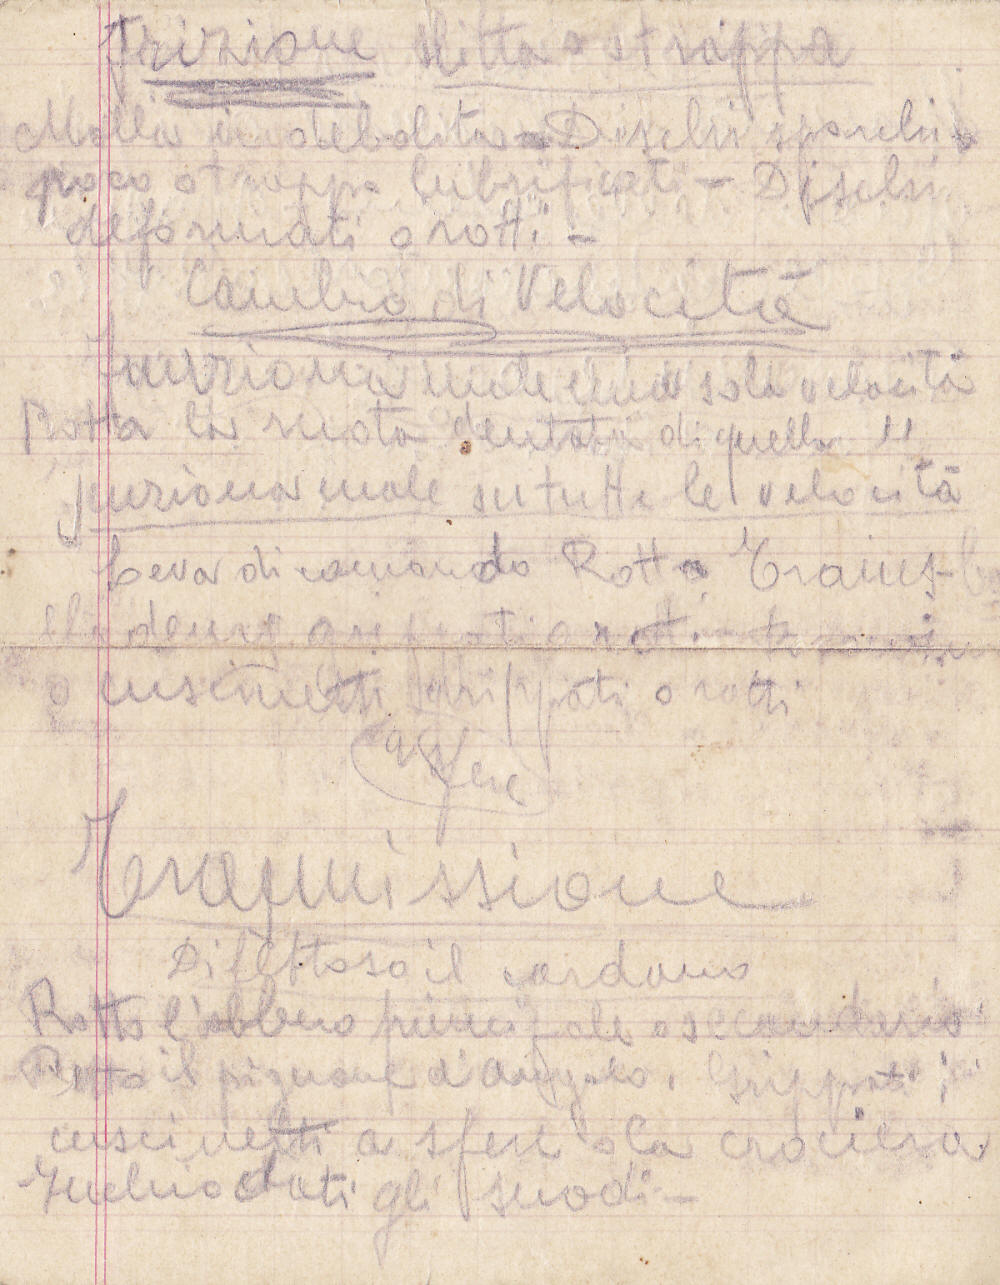 Frizione slitta o strappa
Molla indebolita - Dischi sporchi o
poco o troppo lubrificati - Dischi
deformati o rotti -
Cambio di Velocità
Funziona male una sola velocità
Rotta la ruota dentata di quella "
funziona male su tutte le velocità
Leva di comando Rotta
denti o rotti
o cuscinetti grippati o rotti
a sfere
Trasmissione
Difettoso il cardano
Rotto l'albero principale o secondario
Rotto il pignone d'angolo. Grippati i
cuscinetti a sfere o la crociera
Inchiodati gli snodi -